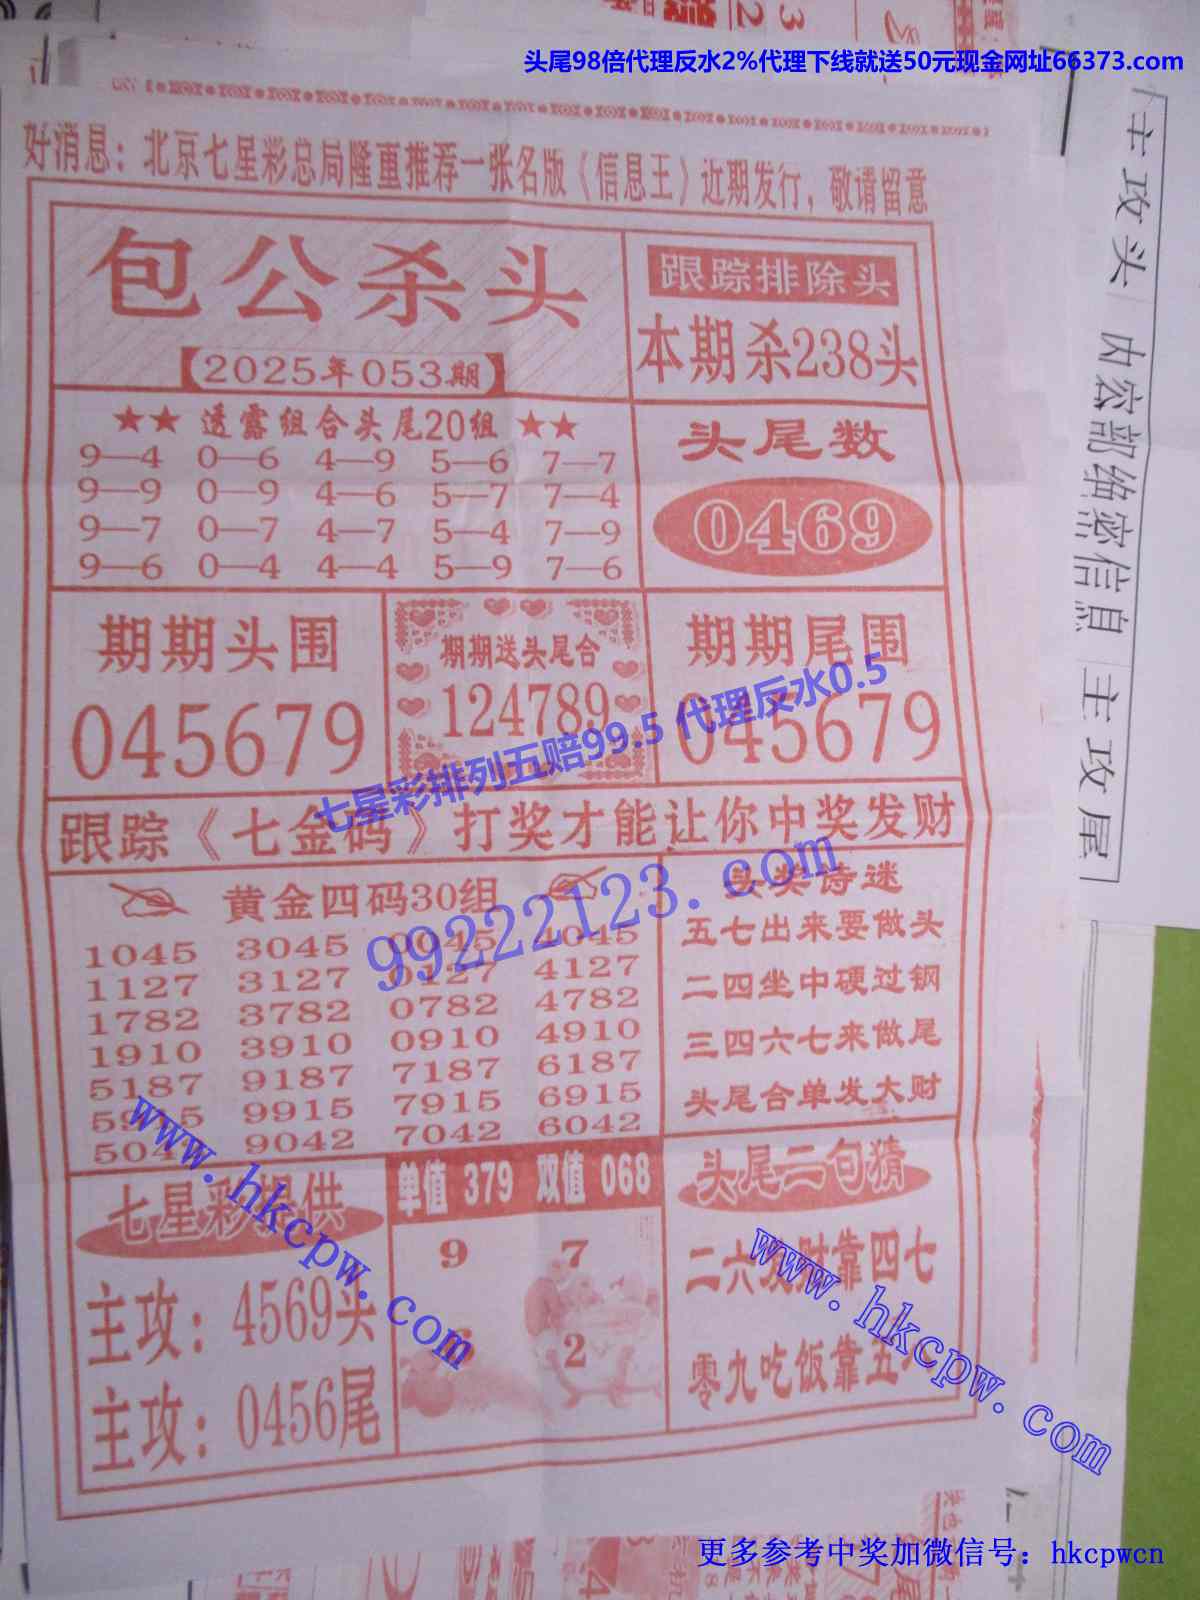 头尾98倍代理反水2%代理下线就送50元现金网址66373.com
好消息：北京七星彩总局隆重推荐一张名版《信息王》近期发行，敬请留意
包公杀头
【2025年053期】
跟踪排除头
本期杀238头
★★ 透露组合头尾20组 ★★
9—4 0—6 4—9 5—6 7—7
9—9 0—9 4—6 5—7 7—4
9—7 0—7 4—7 5—4 7—9
9—6 0—4 4—4 5—9 7—6
头尾数
0469
期期头围
045679
期期送头尾合
124789
期期尾围
045679
七星彩排列五赔99.5 代理反水0.5
跟踪《七金码》打奖才能让你中奖发财
黄金四码30组
1045 3045 0045 4045
1127 3127 0127 4127
1782 3782 0782 4782
1910 3910 0910 4910
5187 9187 7187 6187
9915 7915 6915
9042 7042 6042
99222123.com
头奖诗迷
五七出来要做头
二四坐中硬过钢
三四六七来做尾
头尾合单发大财
七星彩提供
主攻：4569头
主攻：0456尾
单值 379 双值 068
9 7
2
头尾二句猜
二六发财靠四七
零九吃饭靠五
www.hkcpw.com
www.hkcpw.com
主攻头 内宏部绝密信息 主攻尾
更多参考中奖加微信号：hkcpwcn